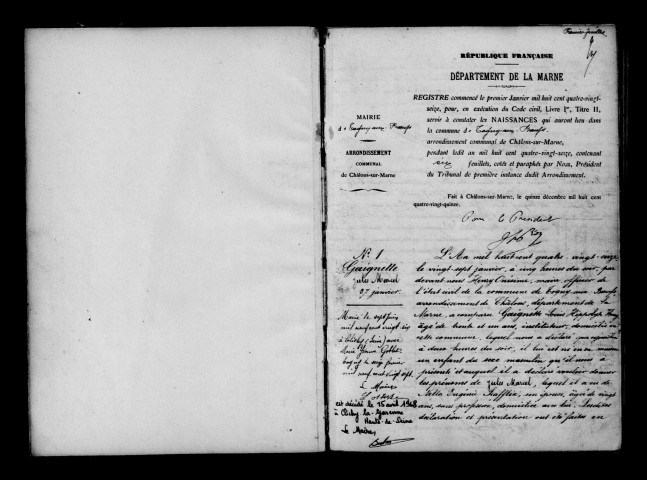 Premier feuillet
RÉPUBLIQUE FRANÇAISE
DÉPARTEMENT DE LA MARNE
REGISTRE commencé le premier Janvier mil huit cent quatre-vingt-
seize, pour, en exécution du Code civil, Livre Ier, Titre II,
servir à constater les NAISSANCES qui auront lieu dans
la commune de Togny-aux-Bœufs
arrondissement communal de Châlons-sur-Marne,
pendant ledit an mil huit cent quatre-vingt-seize, contenant
six feuillets, cotés et paraphés par Nous, Président
du Tribunal de première instance dudit Arrondissement.
MAIRIE
de Togny-aux-Bœufs
ARRONDISSEMENT
COMMUNAL
de Châlons-sur-Marne
Fait à Châlons-sur-Marne, le quinze décembre mil huit cent
quatre-vingt-quinze.
Pour le Président
N° 1
Gaignette
Jules Marcel
27 janvier
Marié le sept juin
mil neuf cent vingt six
à
Marie
le
mil neuf cent vingt sept.
Le Maire
est décédé le 15 avril 1968
à Clichy-la-Garenne
Hauts-de-Seine
Le Maire
L'An mil huit cent quatre-vingt-seize
le vingt-sept janvier, à cinq heures du soir, par
devant nous Henry Onésime, maire, officier de
l'état civil de la commune de Togny-aux-Bœufs
arrondissement de Châlons, département de la
Marne, a comparu Gaignette Louis Hippolyte
âgé de trente et un ans, instituteur, domicilié en
cette commune, lequel nous a déclaré, qu'aujourd'hui
à deux heures du soir, il lui est né en sa
un enfant du sexe masculin qu'il nous a
présenté et auquel il a déclaré vouloir donner
les prénoms de Jules Marcel, lequel il a eu de
Eugénie, son épouse, âgée de vingt
ans, sans profession, domiciliée avec lui. Lesdites
déclaration et présentation ont été faites en